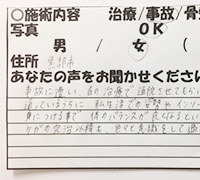 〇施術内容 治療/事故/骨
写真 OK
男 / 女 (
住所 黒部市
あなたの声をお聞かせくださ
事故に遭い、自の治療で通院させてもら
通っているうちに 私生活での姿勢や インソー
身につける事で 体のバランスが良くなり
ケガの交治以降も 色々と意識をして過